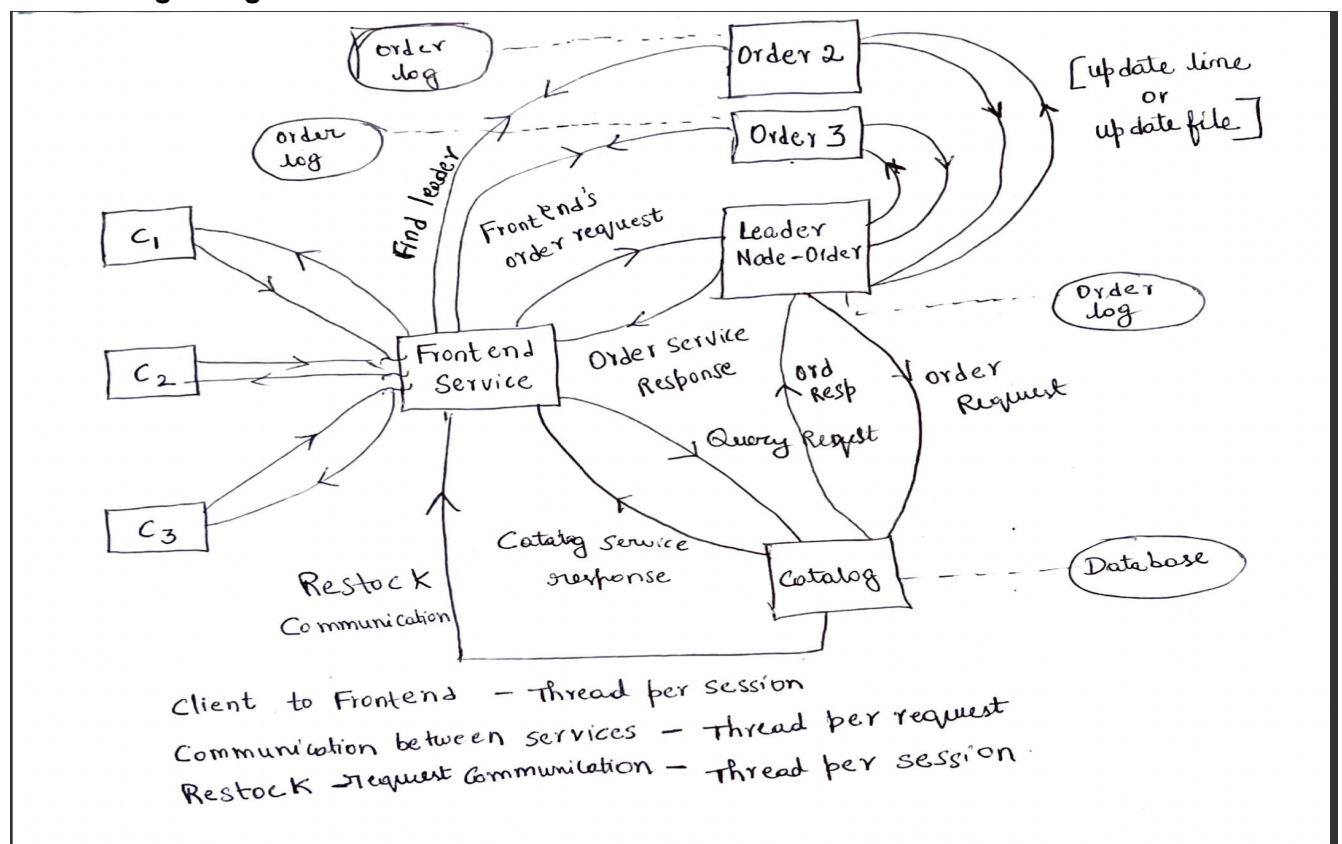 Order
log
Order 2
[update line
or
update file]
Order
log
Order 3
Find leader
Frontend's
order request
C1
Leader
Node-Order
Order
log
Frontend
Service
Order Service
Response
C2
Ord
Resp
Order
Request
Query Reqest
C3
Catalog Service
response
Catalog
Database
Restock
Communication
Client to Frontend - Thread per session
Communication between services - Thread per request
Restock request Communication - Thread per session